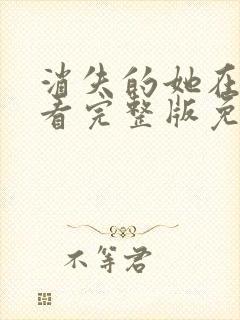 消失的她在
看完整版免
不等君